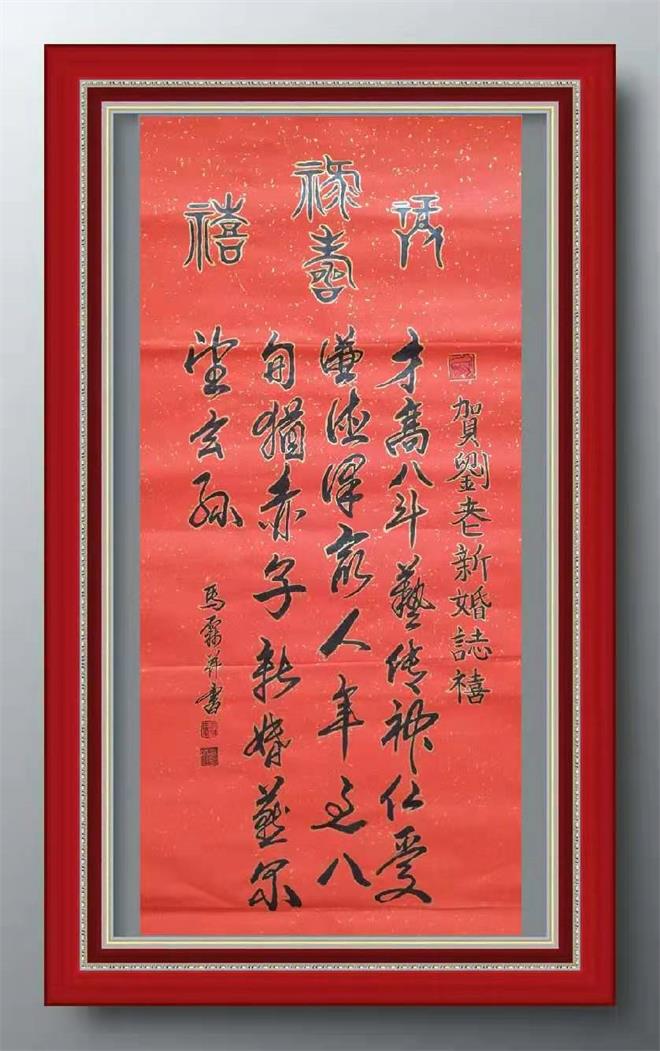 祿壽禧
賀劉老新婚誌禧
才高八斗藝傳神仁愛
謙德澤眾人年過八
旬猶赤子新婚燕爾
望玄孫
馬 祥書